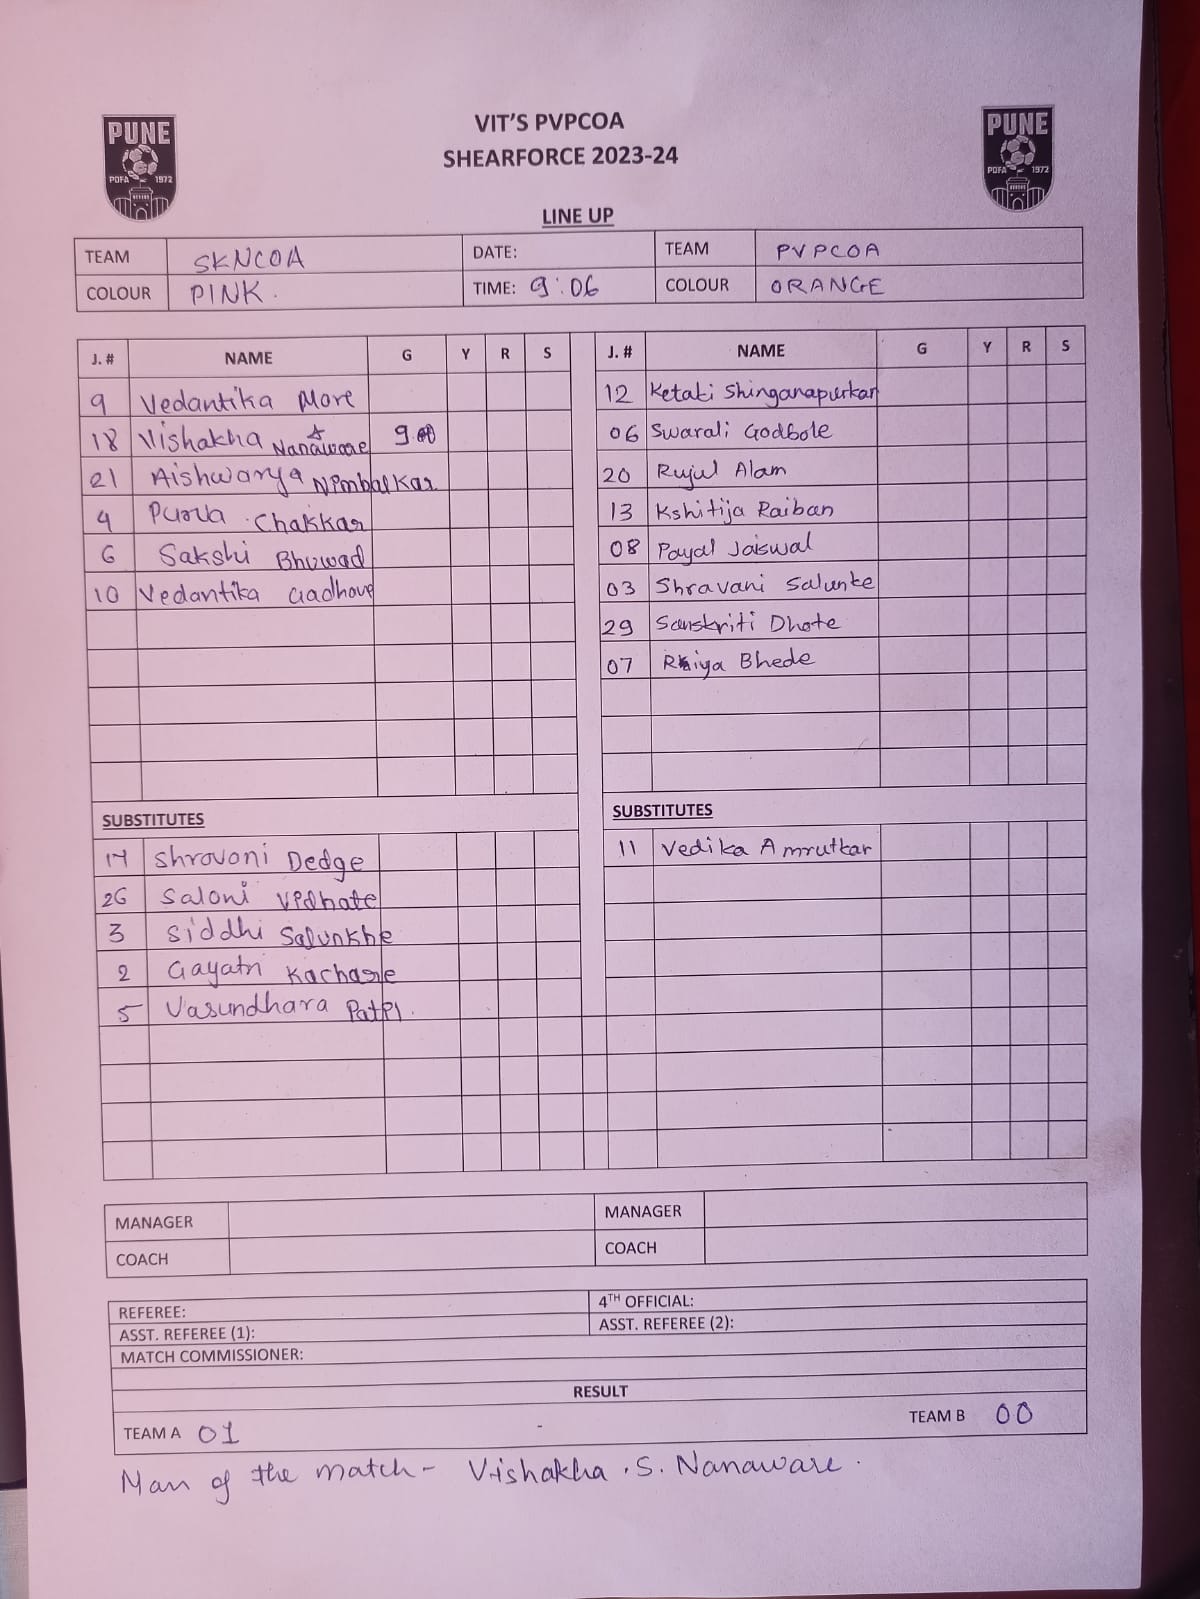 PUNE
PDFA 1972
VIT'S PVPCOA
SHEARFORCE 2023-24
PUNE
PDFA 1972
LINE UP
TEAM SKNCOA DATE: TEAM PVPCOA
COLOUR PINK. TIME: 9:06 COLOUR ORANGE
J. # NAME G Y R S J. # NAME G Y R S
9 Vedantika More 12 Ketaki Shinganapurkar
18 Vishakha Nanaware 06 Swarali Godbole
21 Aishwarya Nimbalkar 20 Rujul Alam
4 Purva Chakkar 13 Kshitija Raiban
6 Sakshi Bhuwad 08 Payal Jaiswal
10 Vedantika Gadhave 03 Shravani Salunke
29 Sanskriti Dhote
07 Riya Bhede
SUBSTITUTES SUBSTITUTES
17 Shravani Dedge 11 Vedika Amrutkar
26 Saloni Vidhate
3 Siddhi Salunkhe
2 Gayatri Kachare
5 Vasundhara Patil.
MANAGER MANAGER
COACH COACH
REFEREE: 4TH OFFICIAL:
ASST. REFEREE (1): ASST. REFEREE (2):
MATCH COMMISSIONER:
RESULT
TEAM A 01 - TEAM B 00
Man of the match - Vishakha .S. Nanaware.